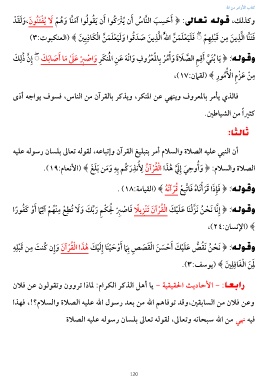 كتاب الأمر من الله
وكذلك، قوله تعالى: ﴿ أَحَسِبَ النَّاسُ أَن يُتْرَكُوا أَن يَقُولُوا آمَنَّا وَهُمْ لَا يُفْتَنُونَ، وَلَقَدْ
فَتَنَّا الَّذِينَ مِن قَبْلِهِمْ ۖ فَلَيَعْلَمَنَّ اللَّهُ الَّذِينَ صَدَقُوا وَلَيَعْلَمَنَّ الْكَاذِبِينَ ﴾ (العنكبوت:٣)
وقوله: ﴿ يَا بُنَيَّ أَقِمِ الصَّلَاةَ وَأْمُرْ بِالْمَعْرُوفِ وَانْهَ عَنِ الْمُنكَرِ وَاصْبِرْ عَلَىٰ مَا أَصَابَكَ ۖ إِنَّ ذَٰلِكَ
مِنْ عَزْمِ الْأُمُورِ ﴾ (لقمان:١٧)،
فالذي يأمر بالمعروف وينهى عن المنكر، ويذكر بالقرآن من الناس، فسوف يواجه أذى
كثيراً من الشياطين.
ثالثا:
أن النبي عليه الصلاة والسلام أمر بتبليغ القرآن وإتباعه، لقوله تعالى بلسان رسوله عليه
الصلاة والسلام: ﴿ وَأُوحِيَ إِلَيَّ هَٰذَا الْقُرْآنُ لِأُنذِرَكُم بِهِ وَمَن بَلَغَ ﴾ (الأنعام:١٩).
وقوله: ﴿ فَإِذَا قَرَأْنَاهُ فَاتَّبِعْ قُرْآنَهُ ﴾ (القيامة:١٨) .
وقوله: ﴿ إِنَّا نَحْنُ نَزَّلْنَا عَلَيْكَ الْقُرْآنَ تَنزِيلًا فَاصْبِرْ لِحُكْمِ رَبِّكَ وَلَا تُطِعْ مِنْهُمْ آثِمًا أَوْ كَفُورًا
﴾ (الإنسان:٢٤)،
وقوله: ﴿ نَحْنُ نَقُصُّ عَلَيْكَ أَحْسَنَ الْقَصَصِ بِمَا أَوْحَيْنَا إِلَيْكَ هَٰذَا الْقُرْآنَ وَإِن كُنتَ مِن قَبْلِهِ
لَمِنَ الْغَافِلِينَ ﴾ (يوسف:٣).
رابعا: - الأحاديث الحقيقية - يا أهل الذكر الكرام: لماذا تروون وتقولون عن فلان
وعن فلان من السابقين، وقد توفاهم الله من بعد رسول الله عليه الصلاة والسلام؟!، فهذا
فيه نبي من الله سبحانه وتعالى، لقوله تعالى بلسان رسوله عليه الصلاة
120